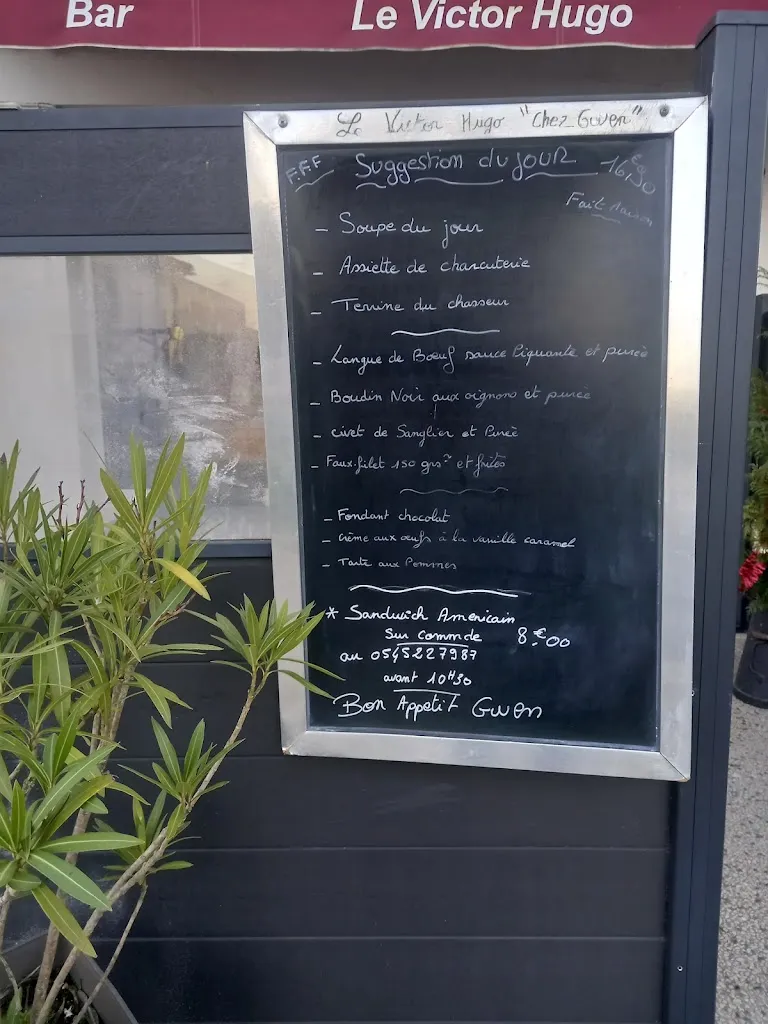 Bar
Le Victor Hugo
Le Victor Hugo "Chez Gwen"
F.F.F Suggestion du jour 16,€90
Fait Maison
- Soupe du jour
- Assiette de charcuterie
- Terrine du chasseur
- Langue de Bœuf sauce Piquante et purée
- Boudin Noir aux oignons et purée
- civet de Sanglier et Purée
- Faux-filet 150 grs et frites
- Fondant chocolat
- Crème aux œufs à la vanille caramel
- Tarte aux Pommes
* Sandwich Americain
Sur commde 8€00
au 0545227987
avant 10H30
Bon Appetit Gwen